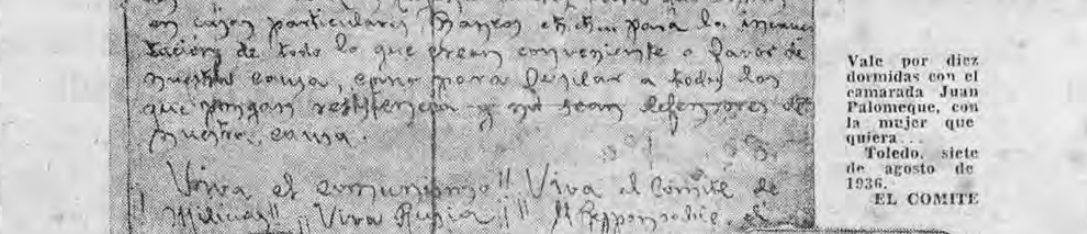 en cajas particulares, Bancos etc. etc. para la incau
tación de todo lo que crean conveniente a favor de
nuestra causa, como para fusilar a todos los
que pongan resistencia y no sean defensores de
nuestra causa.
Viva el comunismo!! Viva el Comité de
Milicias!! ¡¡Viva Rusia!! El Responsable, el
Vale por diez
dormidas con el
camarada Juan
Palomeque, con
la mujer que
quiera...
Toledo, siete
de agosto de
1936.
EL COMITE